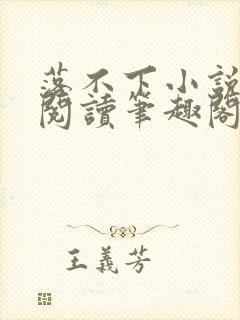 落不下小説
閱讀筆趣閣
王義芳